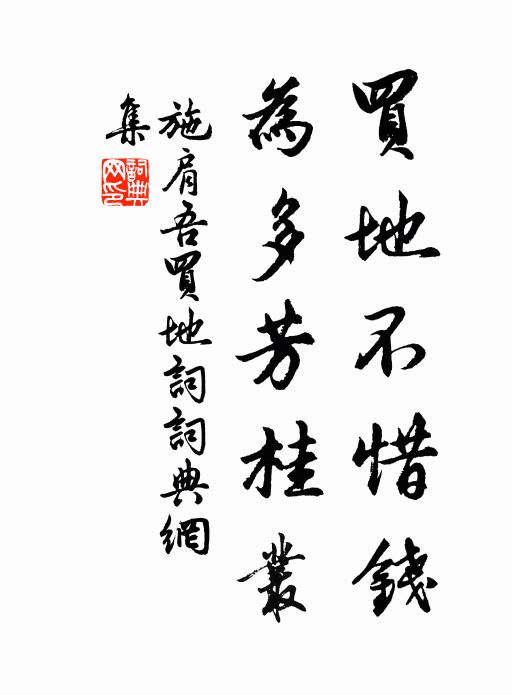 買地不惜錢
為多芳桂叢
施肩吾買地詞詞典網
集
詞典
网印